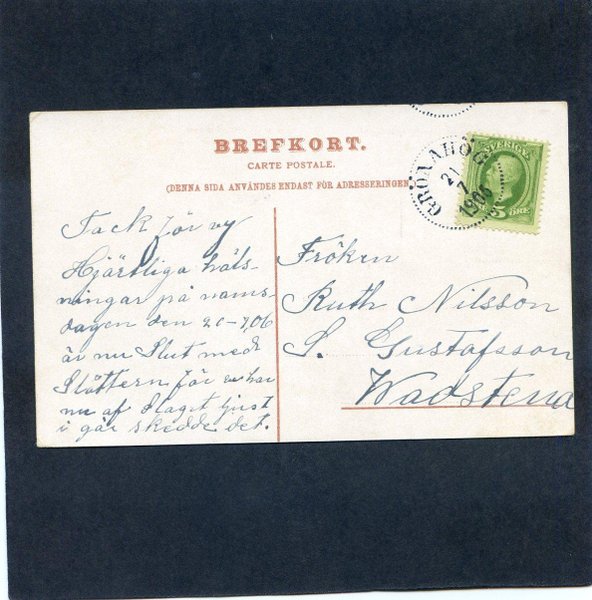 BREFKORT.
CARTE POSTALE.
(DENNA SIDA ANVÄNDES ENDAST FÖR ADRESSERINGEN
SVERIGE
5 ÖRE
21
7
1906
Tack för vy
Hjärtliga häls-
ningar på nams-
dagen den 20-7,06
är nu Slut med
Slåttern för
nu af Slaget just
i går skedde det.
Fröken
Ruth Nilsson
S. Gustafsson
Wadstena